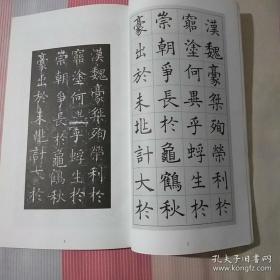 漢魏豪桀殉榮利於
窮塗何異乎蜉生於
崇朝爭長於龜鶴秋
豪出於未兆計大於
漢魏豪桀殉榮利於
窮塗何異乎蜉生於
崇朝爭長於龜鶴秋
豪出於未兆計大於